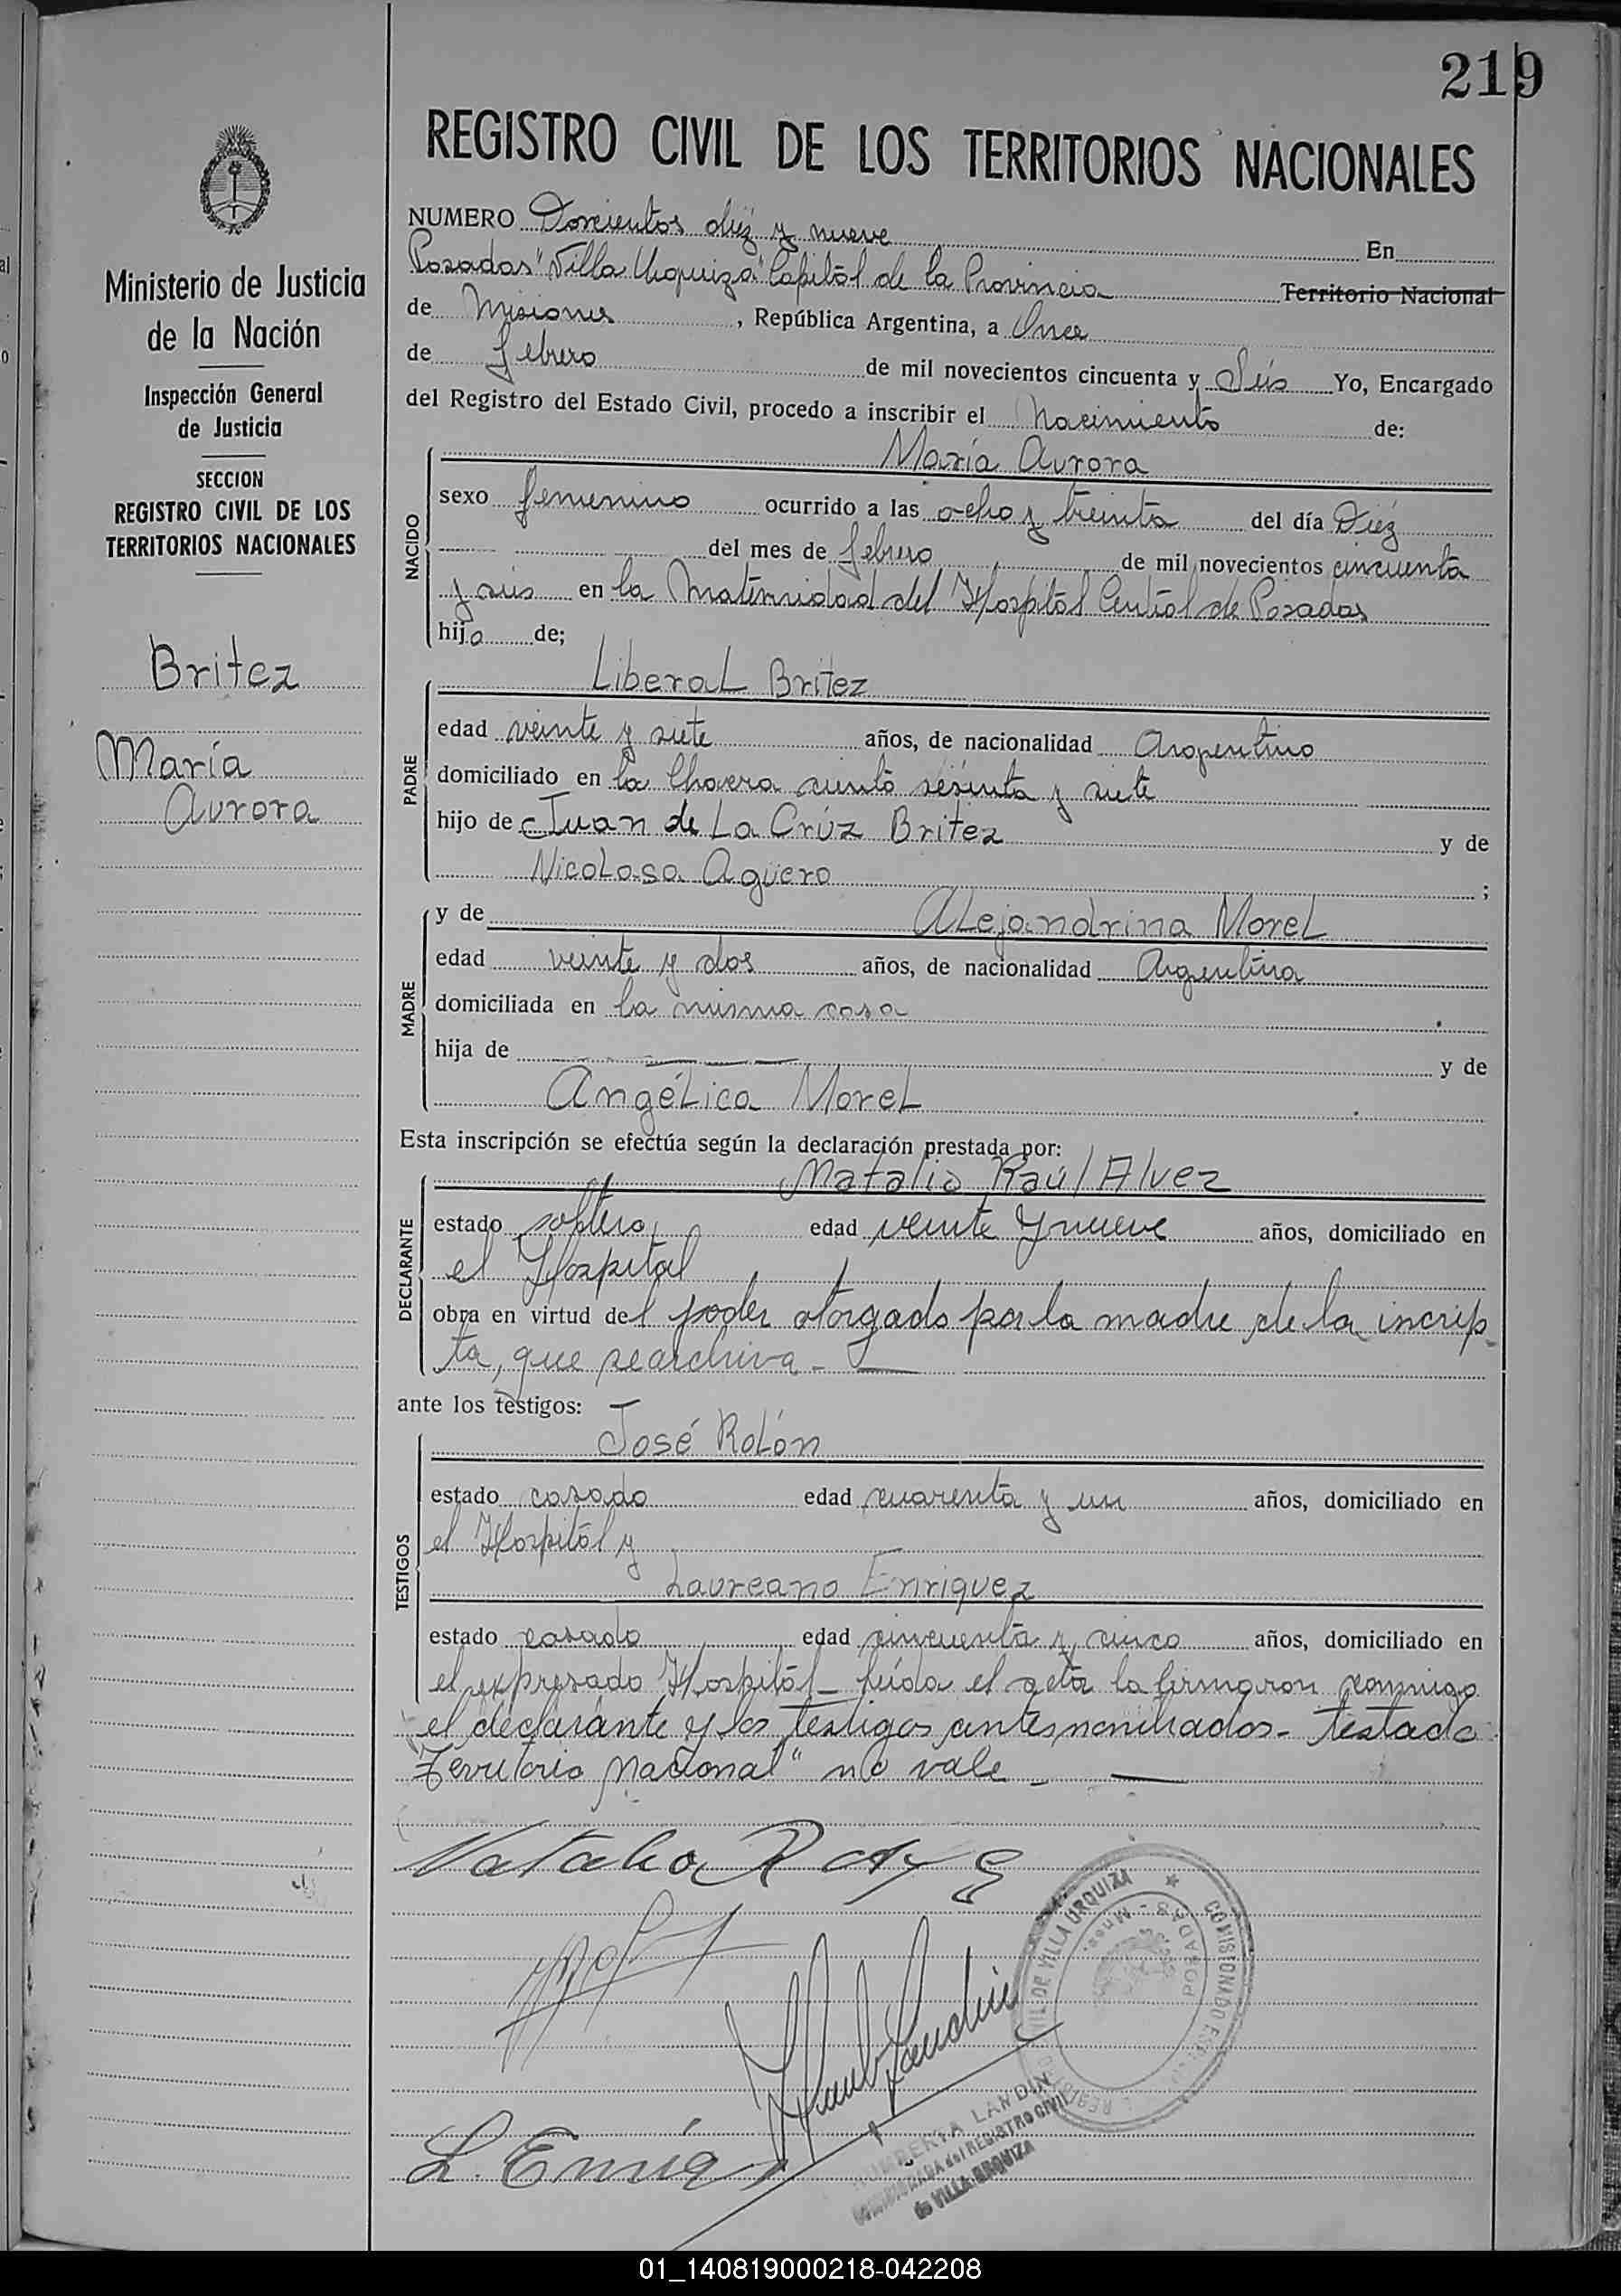 219
REGISTRO CIVIL DE LOS TERRITORIOS NACIONALES
Ministerio de Justicia
de la Nación
Inspección General
de Justicia
SECCION
REGISTRO CIVIL DE LOS
TERRITORIOS NACIONALES
Britez
María
Aurora
NUMERO Doscientos diéz y nueve En
Posadas "Villa Urquiza" Capital de la Provincia Territorio Nacional
de Misiones , República Argentina, a Once
de febrero de mil novecientos cincuenta y Seis Yo, Encargado
del Registro del Estado Civil, procedo a inscribir el Nacimiento de:
NACIDO
María Aurora
sexo femenino ocurrido a las ocho y treinta del día Diéz
del mes de febrero de mil novecientos cincuenta
y seis en la Maternidad del Hospital Central de Posadas
hija de;
PADRE
Liberal Britez
edad veinte y siete años, de nacionalidad Argentino
domiciliado en la Chacra ciento sesenta y siete
hijo de Juan de La Crúz Britez y de
Nicolasa Agüero ;
MADRE
y de Alejandrina Morel
edad veinte y dos años, de nacionalidad Argentina
domiciliada en la misma casa
hija de y de
Angélica Morel
Esta inscripción se efectúa según la declaración prestada por:
DECLARANTE
Natalio Raúl Alvez
estado soltero edad veinte y nueve años, domiciliado en
el Hospital
obra en virtud del poder otorgado por la madre de la incrip
ta, que se archiva -
ante los testigos:
TESTIGOS
José Rolón
estado casado edad cuarenta y un años, domiciliado en
el Hospital y
Laureano Enriquez
estado casado edad cincuenta y cinco años, domiciliado en
el expresado Hospital - leída el acta la firmaron conmigo
el declarante y los testigos antes nombrados - testado
"Territorio Nacional" no vale -
Natalio R
VILLA URQUIZA
POSADAS - Mnes.
L. Enriq
LANDIN
REGISTRO CIVIL
de VILLA URQUIZA
01_140819000218-042208